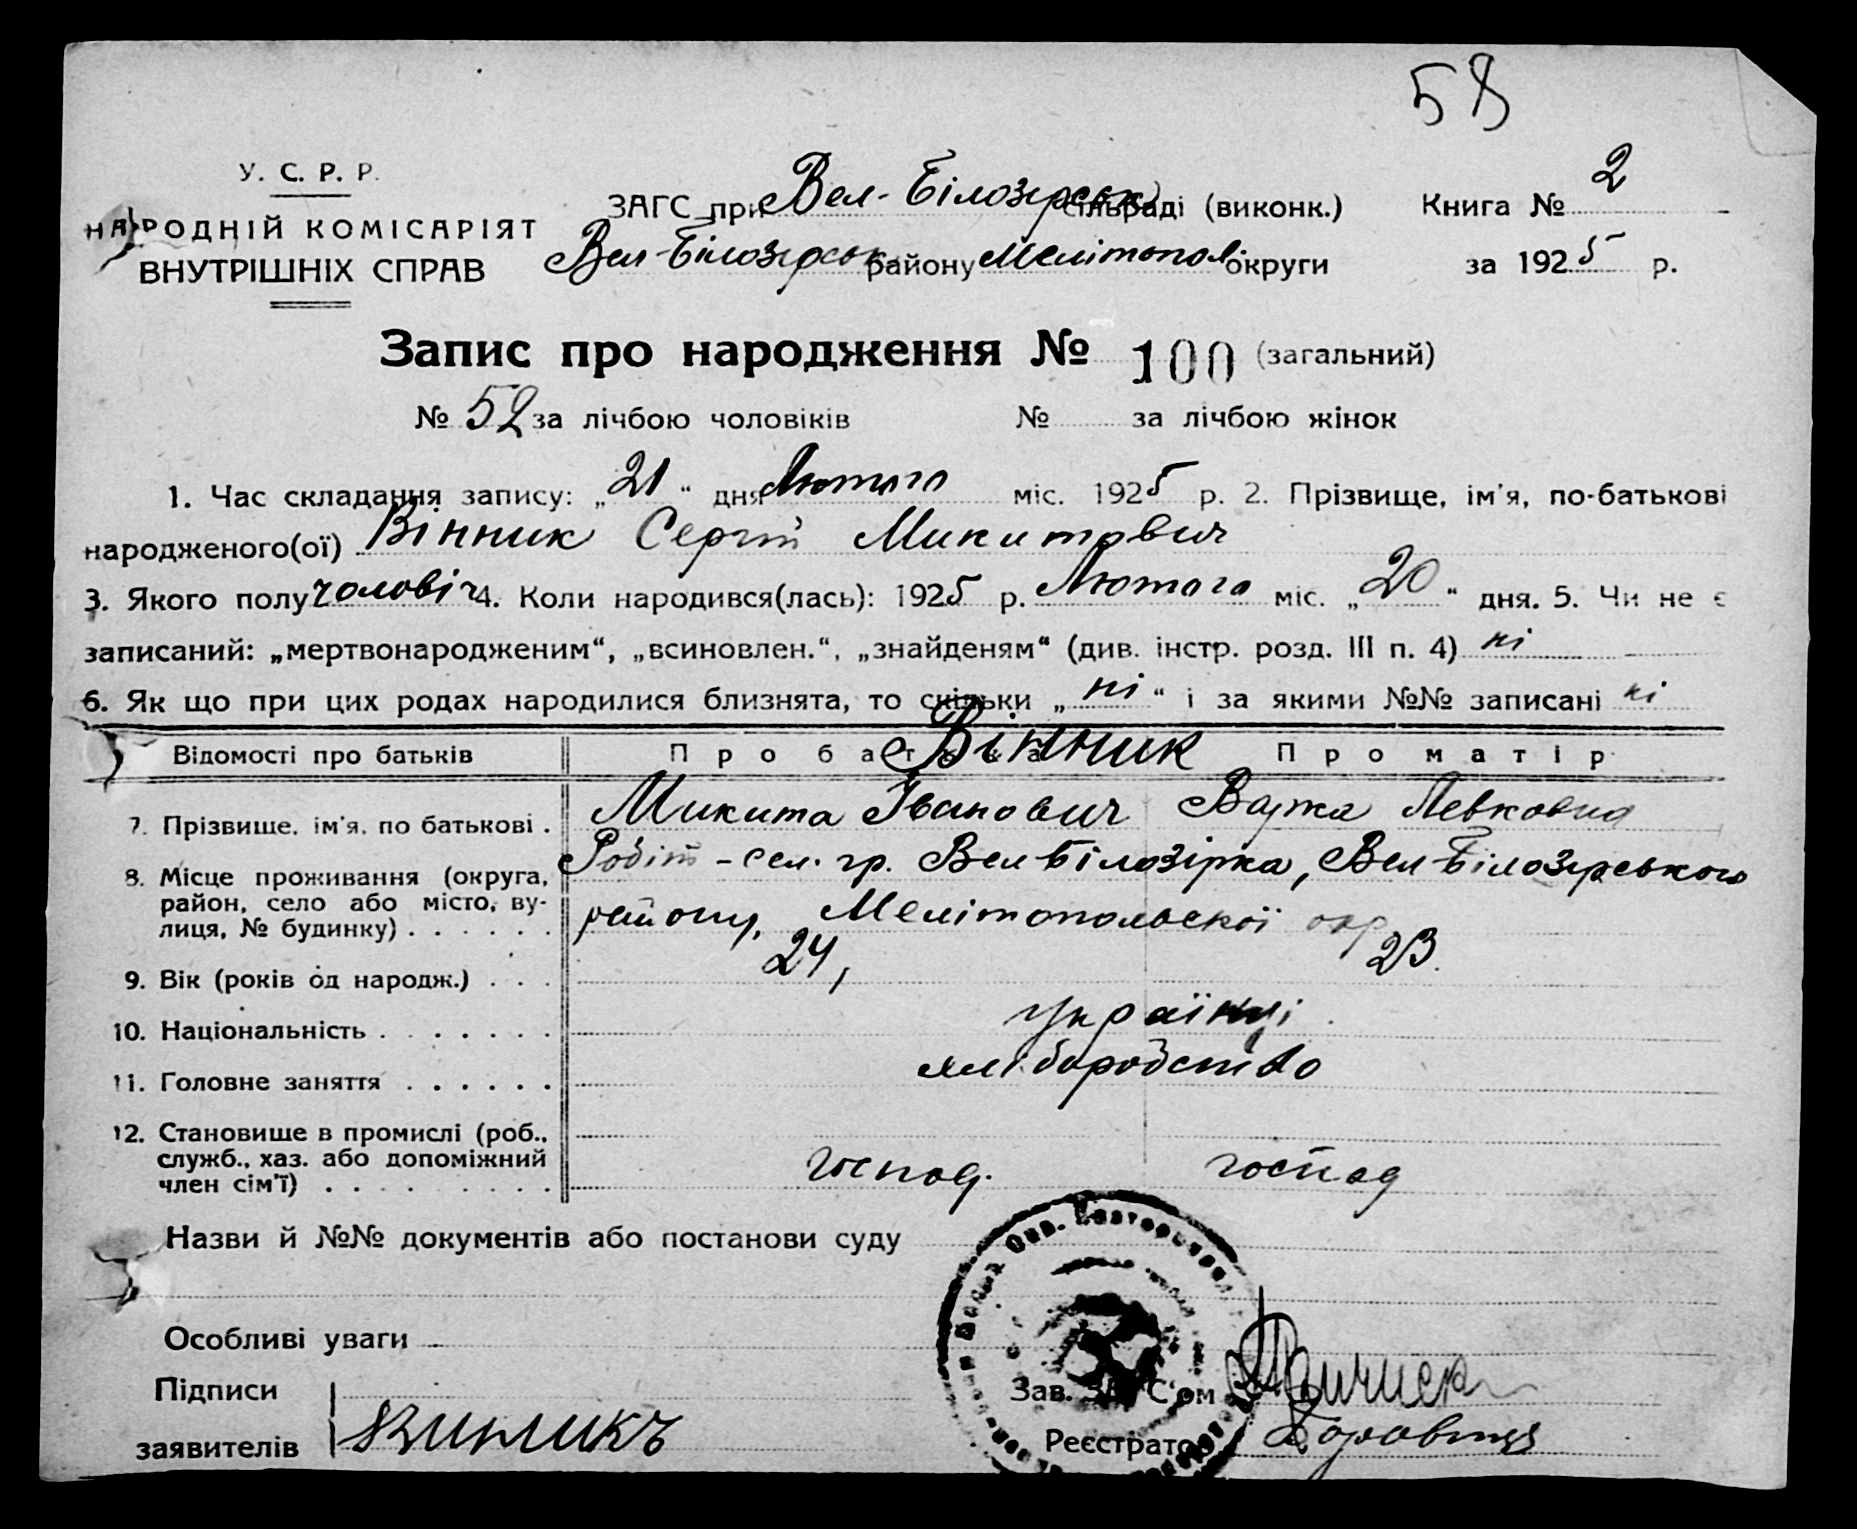 58
У. С. Р. Р.
НАРОДНІЙ КОМІСАРІЯТ
ВНУТРІШНІХ СПРАВ
ЗАГС при Вел-Білозерськ сільраді (виконк.) Книга № 2
Вел-Білозерськ району Мелітопол округи за 1925 р.
Запис про народження № 100 (загальний)
№ 52 за лічбою чоловіків № за лічбою жінок
1. Час складання запису: „21“ дня Лютого міс. 1925 р. 2. Прізвище, ім'я, по-батькові
народженого(ої) Вінник Сергій Микитович
3. Якого полу чоловіч 4. Коли народився(лась): 1925 р. Лютого міс. „20“ дня. 5. Чи не є
записаний: „мертвонародженим“, „всиновлен.“, „знайденям“ (див. інстр. розд. III п. 4) ні
6. Як що при цих родах народилися близнята, то скільки „ні“ і за якими №№ записані ні
Відомості про батьків Про батька Вінник Про матір
7. Прізвище, ім'я, по батькові . Микита Іванович Левковна
8. Місце проживання (округа, район, село або місто, вулиця, № будинку) . . . . . . Робіт-сел. гр. Вел Білозірка, Вел-Білозерського
району, Мелітопольскої окр
9. Вік (років од народж.) . . . 24, 23.
10. Національність . . . . . . . українці
11. Головне заняття . . . . . . хліборобство
12. Становище в промислі (роб., служб., хаз. або допоміжний член сім'ї) . . . . . . . . господ. господ
Назви й №№ документів або постанови суду
Особливі уваги
Підписи
заявителів Винникъ
Зав. ЗАГС'ом
Реєстратор